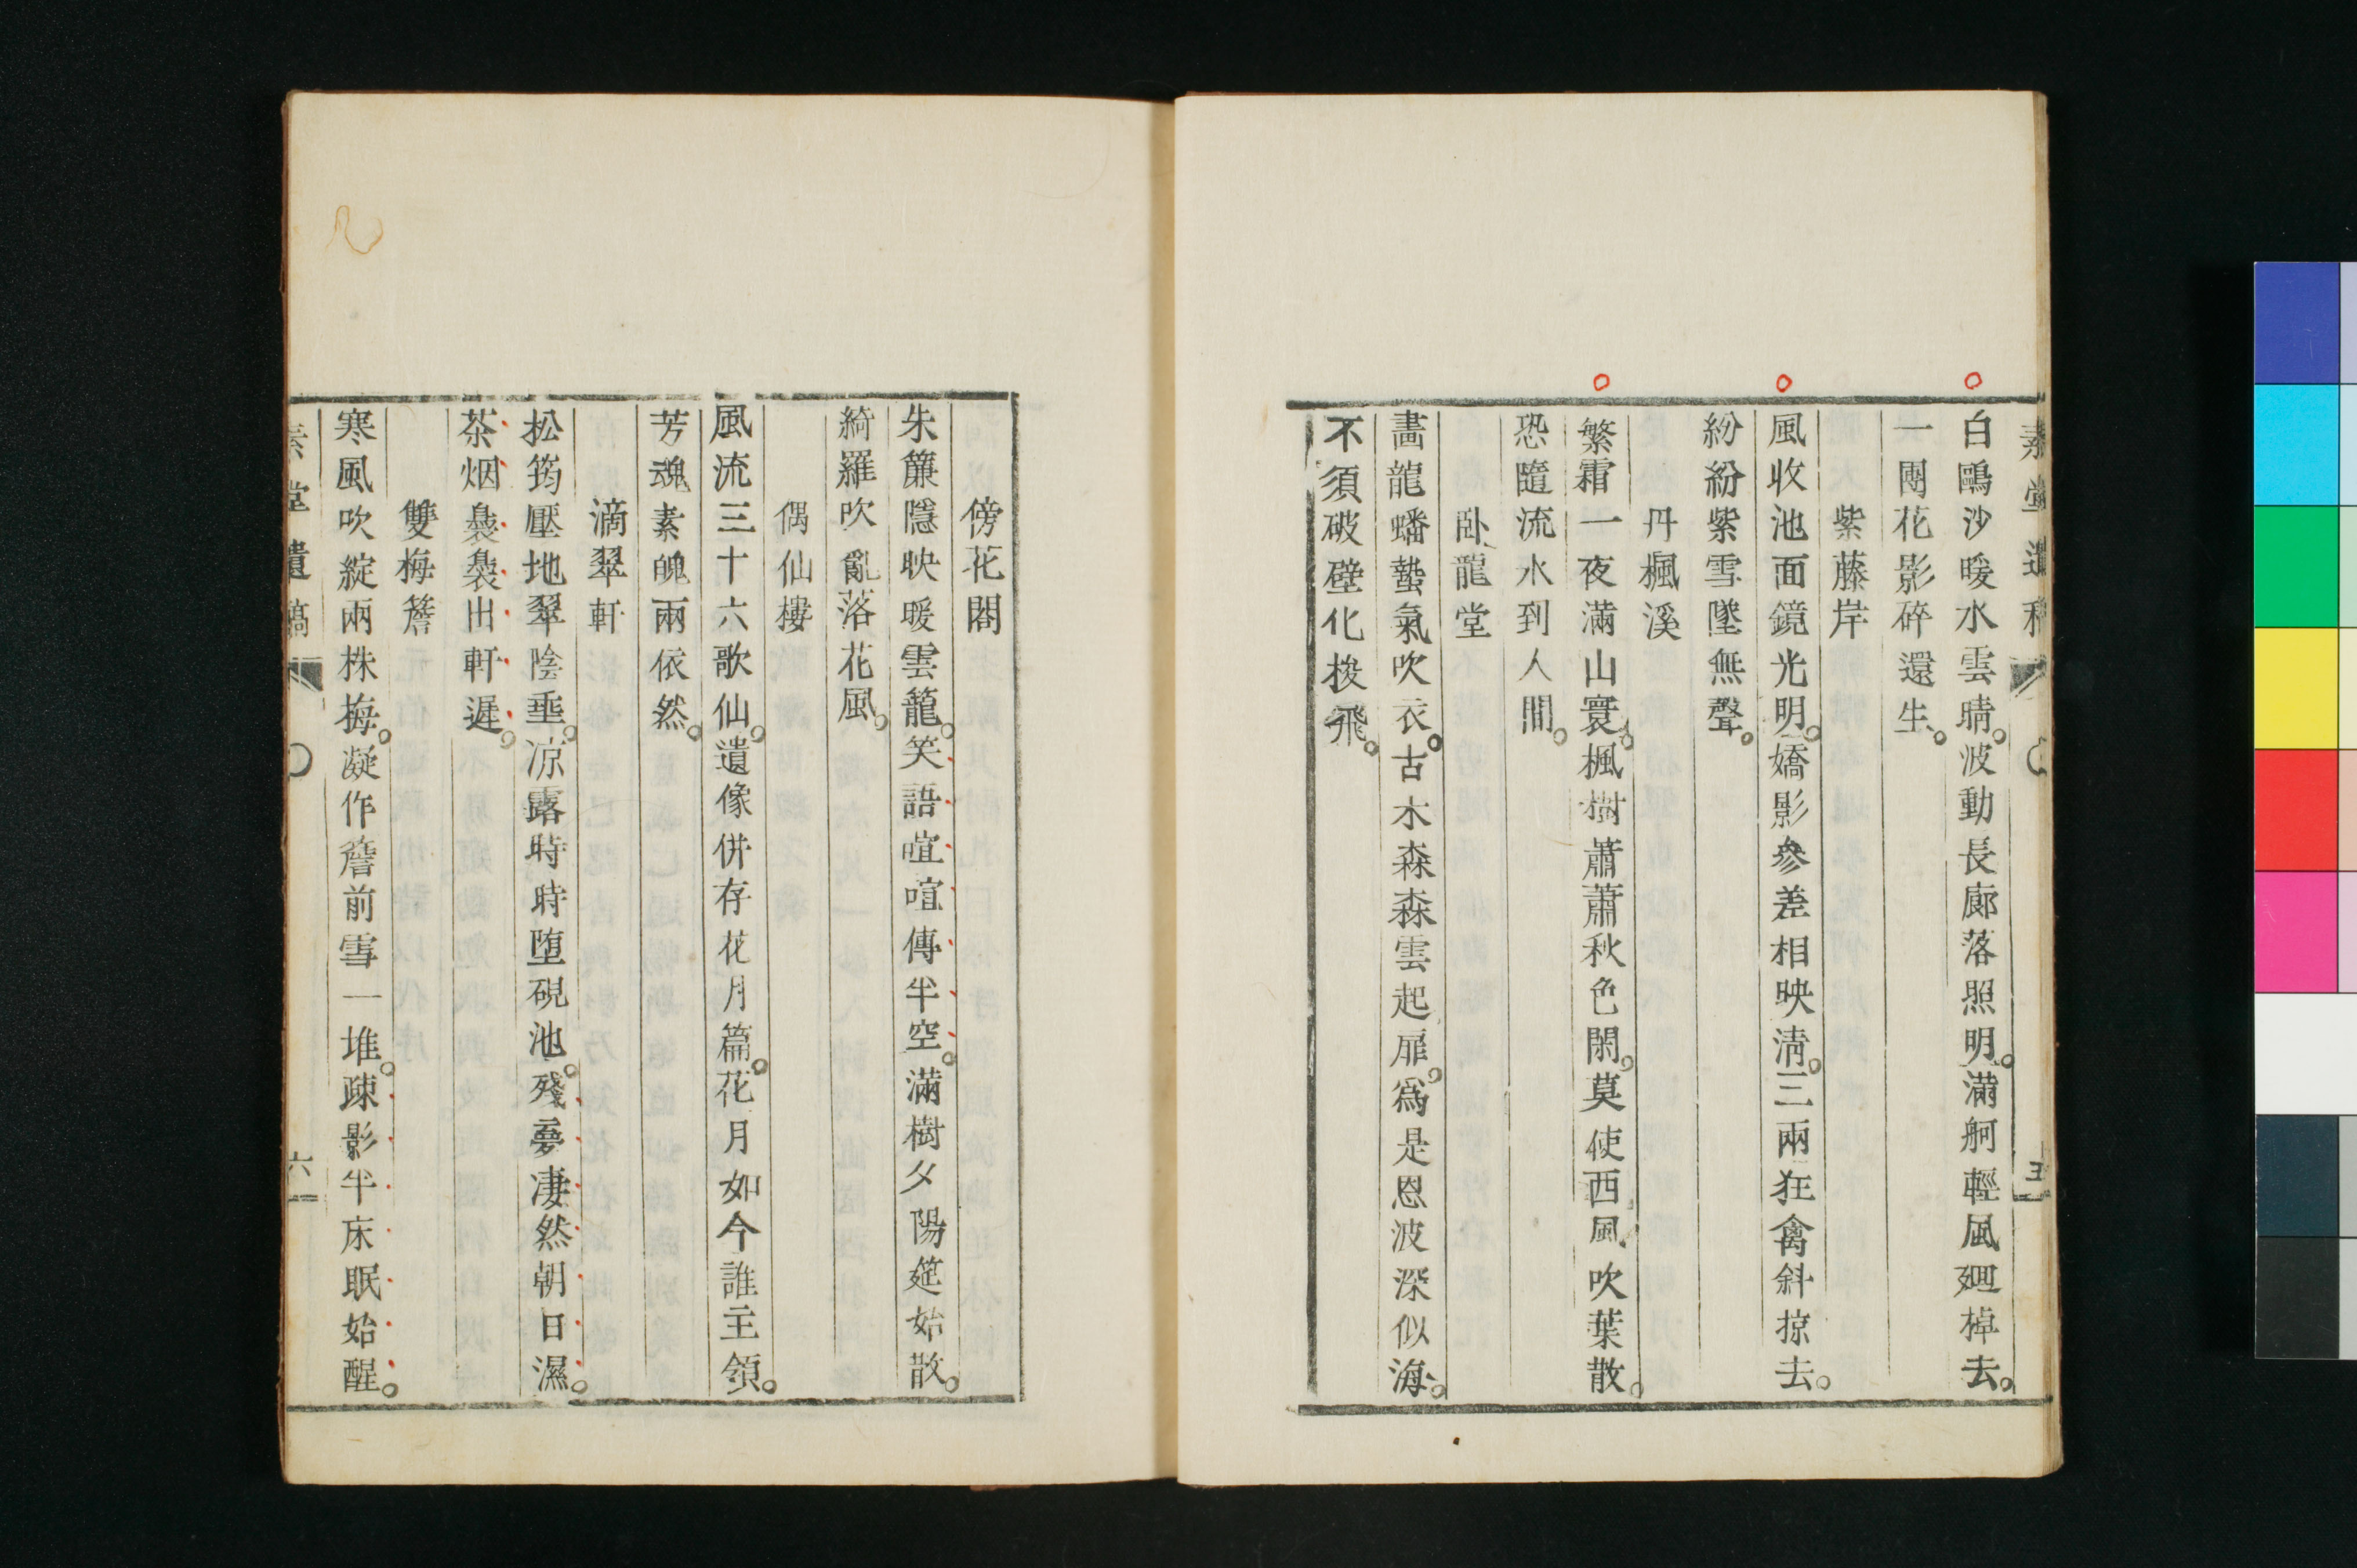 素堂遺稿
五
白鷗沙暖水雲晴。波動長廊落照明。滿舸輕風廻棹去。
一團花影碎還生。
紫藤岸
風收池面鏡光明。嬌影參差相映淸。三兩狂禽斜掠去。
紛紛紫雪墜無聲。
丹楓溪
繁霜一夜滿山寰。楓樹蕭蕭秋色閑。莫使西風吹葉散。
恐隨流水到人間。
卧龍堂
畵龍蟠蟄氣吹衣。古木森森雲起扉。爲是恩波深似海。
不須破壁化梭飛。
傍花閣
朱簾隱映暖雲籠。笑語喧喧傳半空。滿樹夕陽筵始散。
綺羅吹亂落花風。
偶仙樓
風流三十六歌仙。遺像併存花月篇。花月如今誰主領。
芳魂素魄兩依然。
滴翠軒
松筠壓地翠陰垂。凉露時時堕硯池。殘夢凄然朝日濕。
茶烟裊裊出軒遲。
雙梅簷
寒風吹綻兩株梅。凝作簷前雪一堆。疎影半床眠始醒。
素堂遺稿
六